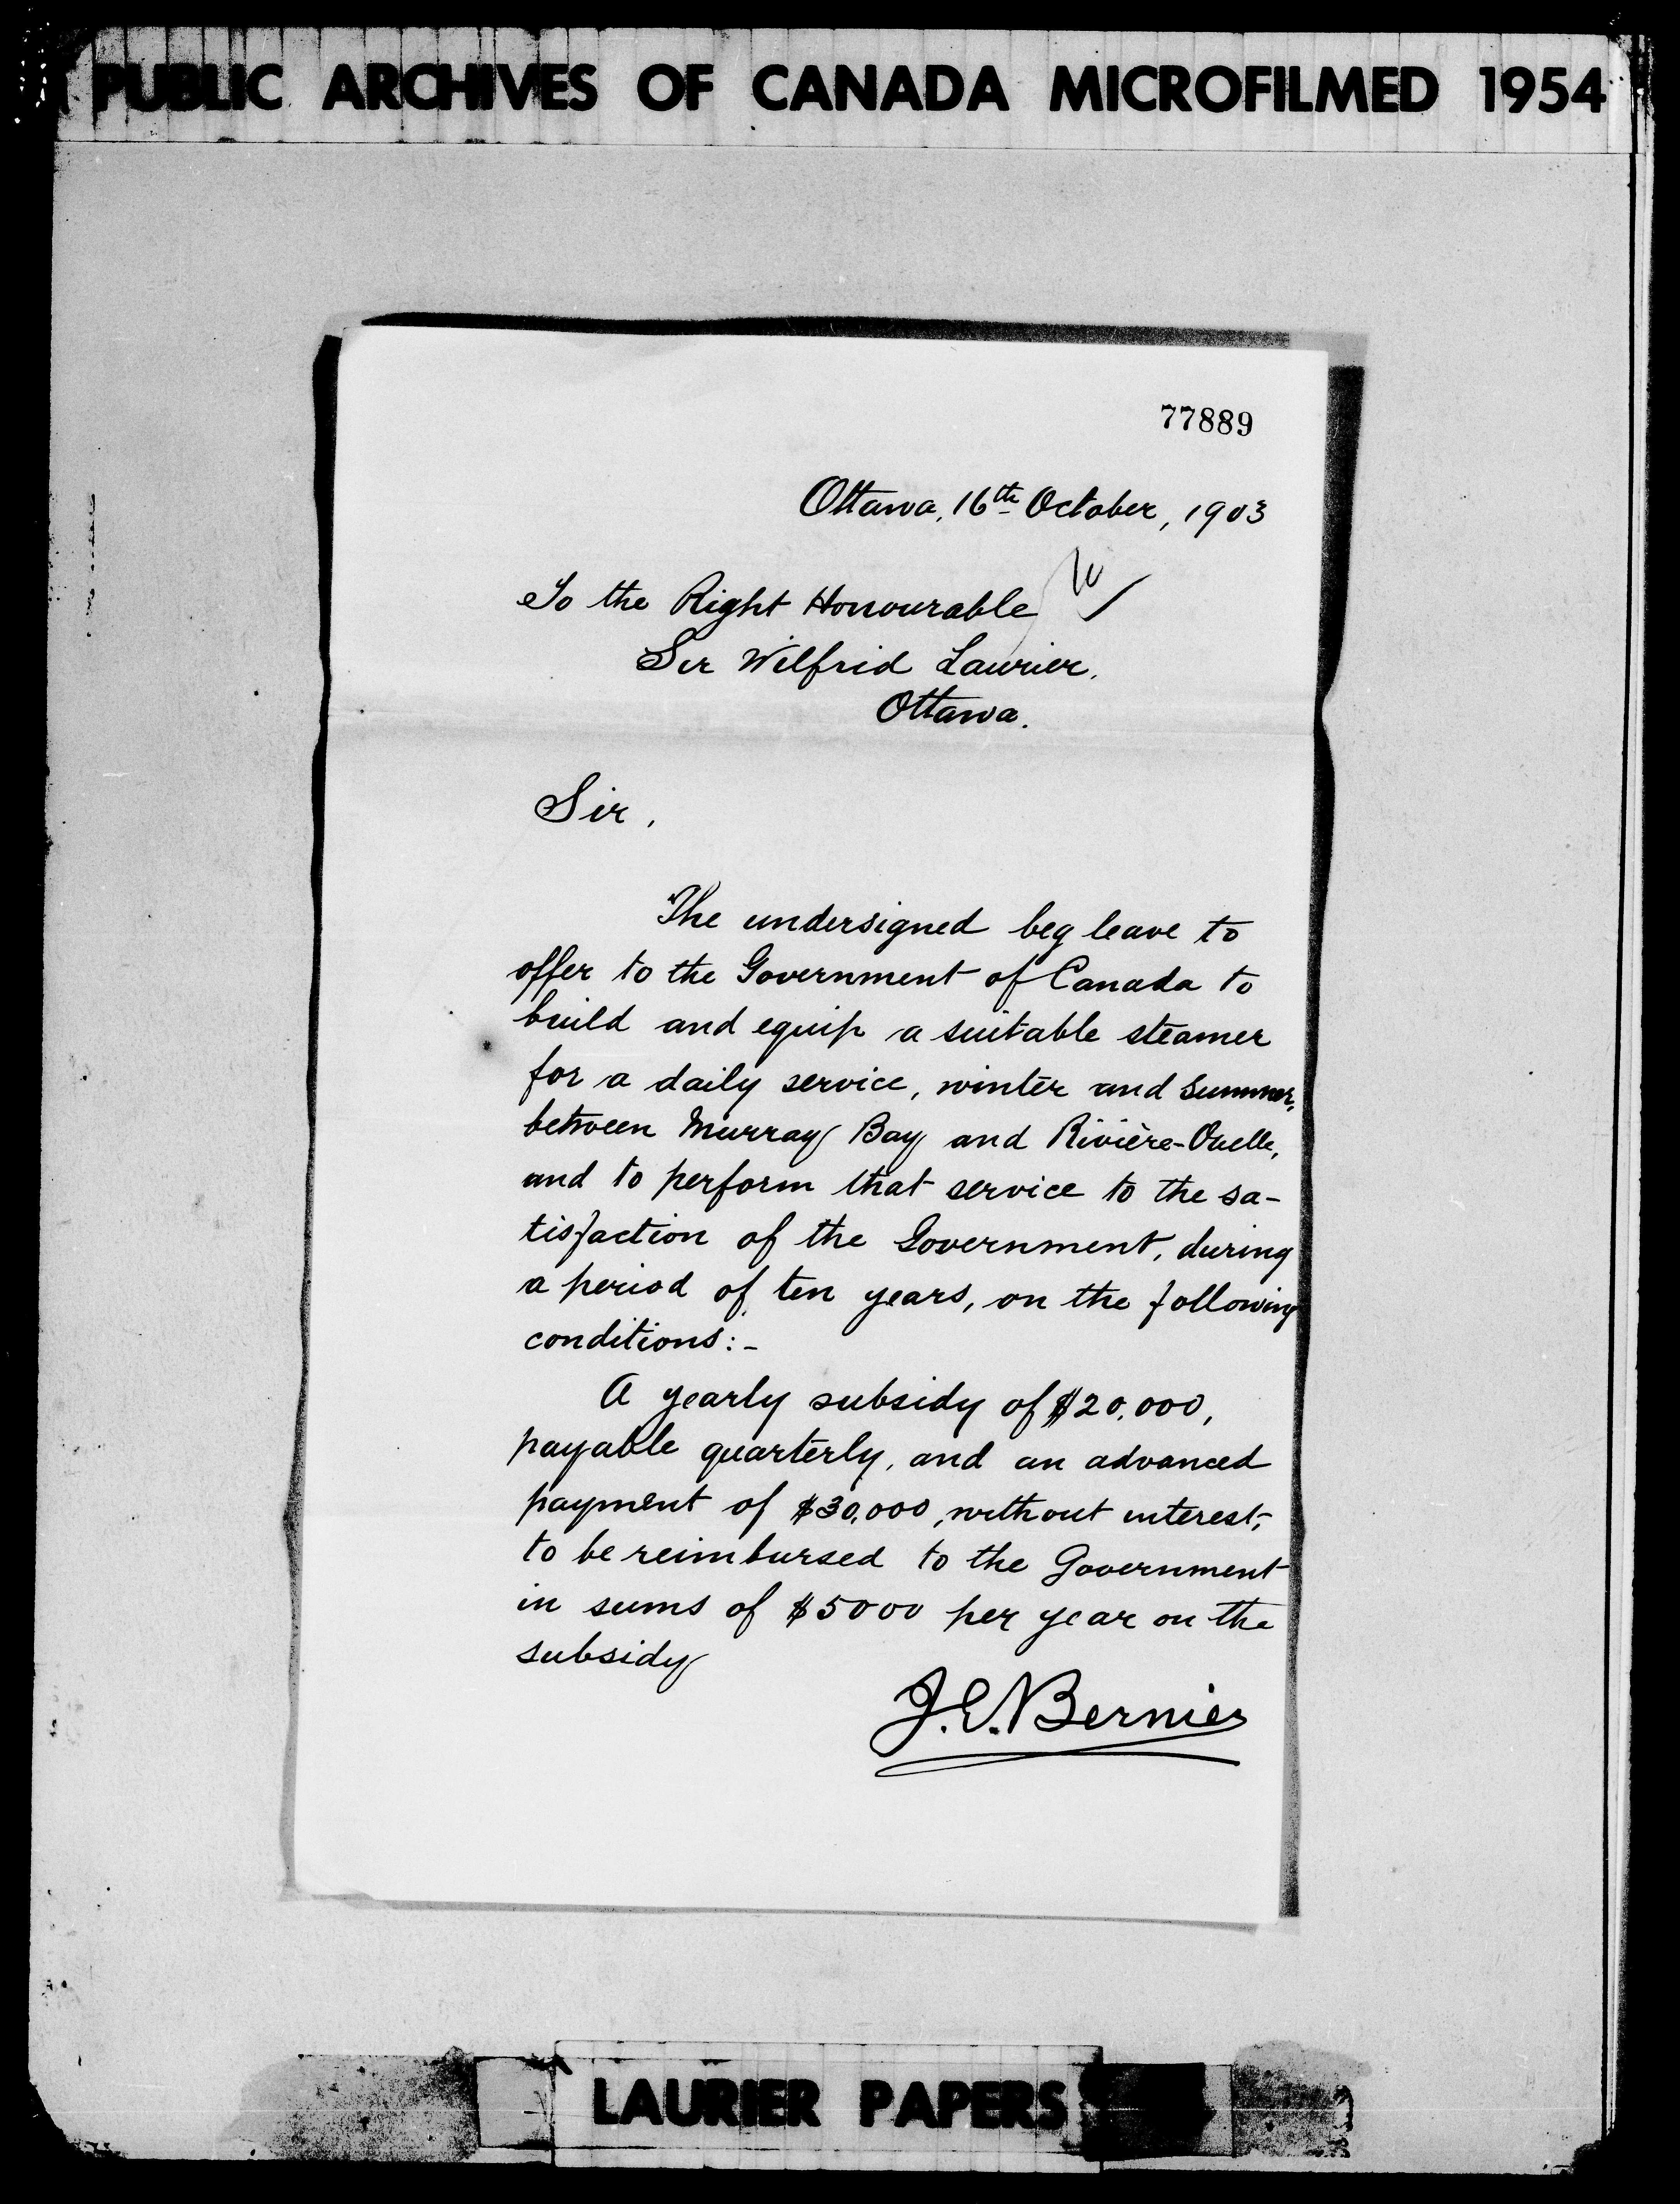 PUBLIC ARCHIVES OF CANADA MICROFILMED 1954
77889
Ottawa, 16th October, 1903
To the Right Honourable
Sir Wilfrid Laurier.
Ottawa.
Sir,
The undersigned beg leave to
offer to the Government of Canada to
build and equip a suitable steamer
for a daily service, winter and summer,
between Murray Bay and Rivière-Ouelle,
and to perform that service to the sa-
tisfaction of the Government, during
a period of ten years, on the following
conditions:-
A yearly subsidy of $20,000,
payable quarterly, and an advanced
payment of $30,000, without interest,
to be reimbursed to the Government
in sums of $5000 per year on the
subsidy
J.E. Bernier
LAURIER PAPERS